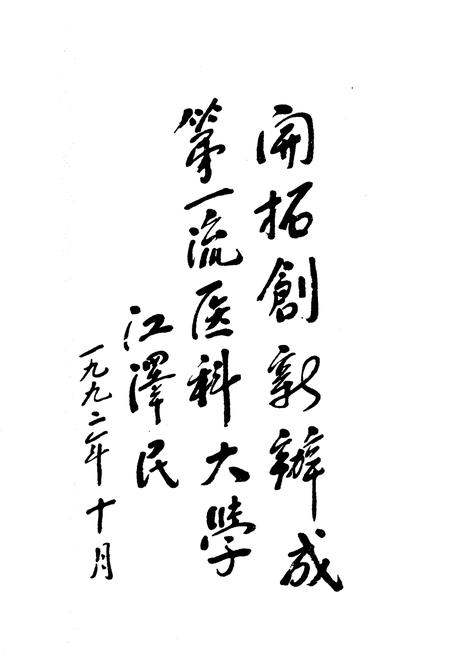 開拓創新辦成
第一流医科大學
江澤民
一九九二年十月